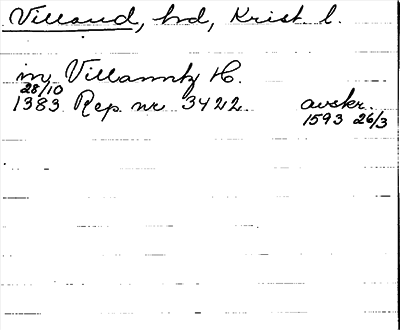 Villand, hd, Krist. l.
in Villanntz H.
28/10
1383 Rep. nr. 3422 avskr.
1593 26/3